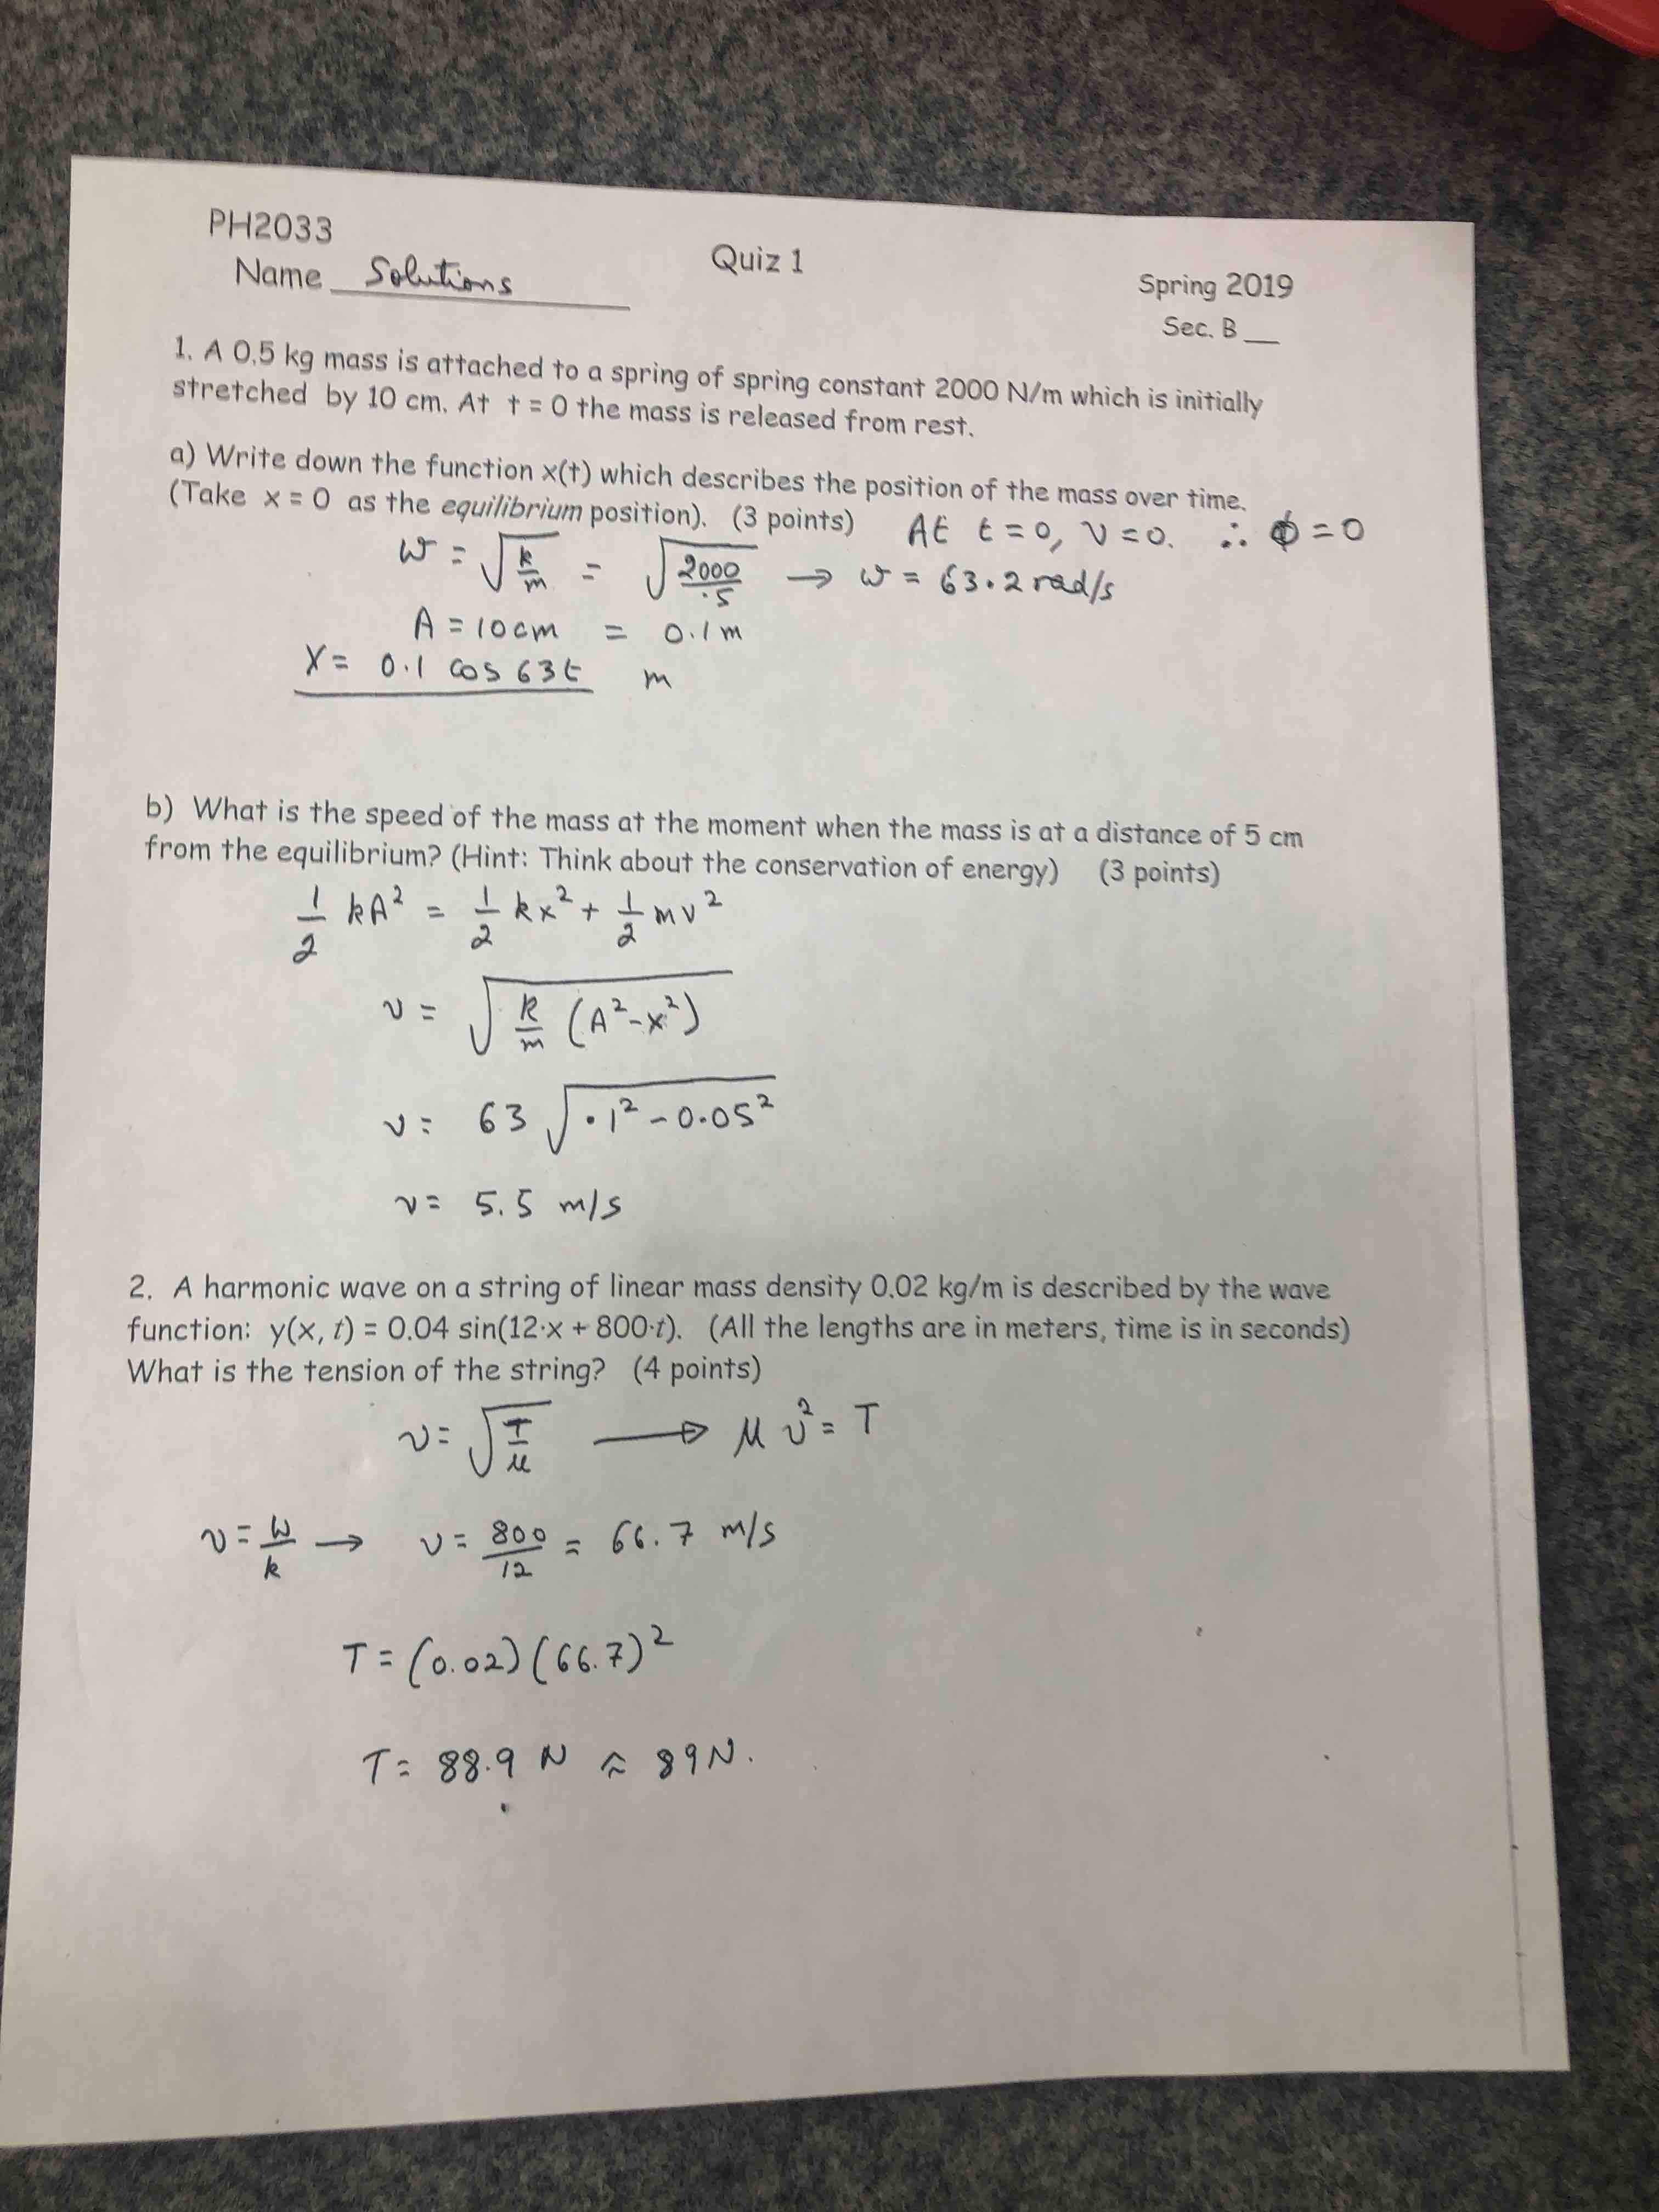 PH2033
Quiz 1
Spring 2019
Name Solutions
Sec. B __
1. A 0.5 kg mass is attached to a spring of spring constant 2000 N/m which is initially
stretched by 10 cm. At t = 0 the mass is released from rest.
a) Write down the function x(t) which describes the position of the mass over time.
(Take x = 0 as the equilibrium position). (3 points) At t = 0, v = 0. ∴ ϕ = 0
ω = √(k/m) = √(2000/.5) → ω = 63.2 rad/s
A = 10 cm = 0.1 m
X = 0.1 cos 63t m
b) What is the speed of the mass at the moment when the mass is at a distance of 5 cm
from the equilibrium? (Hint: Think about the conservation of energy) (3 points)
1/2 kA² = 1/2 kx² + 1/2 mv²
v = √(k/m (A² - x²))
v = 63 √(.1² - 0.05²)
v = 5.5 m/s
2. A harmonic wave on a string of linear mass density 0.02 kg/m is described by the wave
function: y(x, t) = 0.04 sin(12·x + 800·t). (All the lengths are in meters, time is in seconds)
What is the tension of the string? (4 points)
v = √(T/μ) → μ v² = T
v = ω/k → v = 800/12 = 66.7 m/s
T = (0.02)(66.7)²
T = 88.9 N ≈ 89 N.